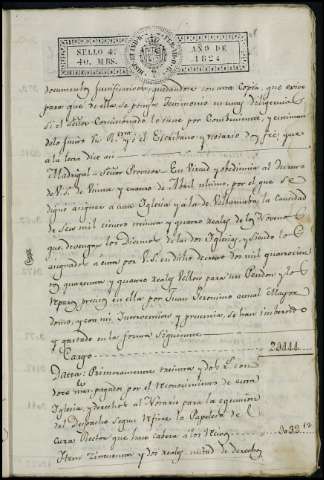 SELLO 4º
40. MRS.
AÑO DE
1824
documentos justificativos, quedandose con una Copia, que exive
para que de ella se ponga testimonio en estas diligencias
si el señor Comisionado lo tiene por Conbeniente, y
de lo firmó y el Escribano y Notario doy fee, que
a la letra dice asi
Madrigal = Señor Provisor = En Virtud y obediencia al decreto
de V.S. de treinta y cuatro de Abril ultimo, por el que se
digno asignar a esta Iglesia y a la de Villanueba, la Cantidad
de Seis mil cinco cientos y cuatro reales, de los Novenos
que devengan los Diezmos de las dos Iglesias, y siendo los
asignados a esta por V.S. en dicho decreto dos mil cuatrocientos
cuarenta y cuatro reales Vellon para un Pendon y los
reparos precisos en ella por Juan Geronimo actual Mayor
domo, y con mi Intervencion y presencia, se han imbertido
y gastado en la forma siguiente
Cargo
2444
Data = Primeramente treinta y dos R. con
doce mrs. pagados por el reconocimiento de esta
Iglesia, y derechos al Notario para la egecucion
del Despacho segun refiere la Papeleta de
Cura Rector que hace cabeza a los recivos
0032 12
Item Cincuenta y dos reales mitad de derechos